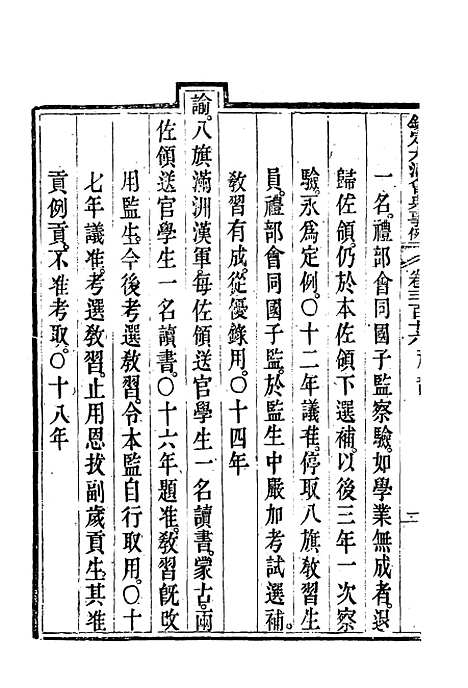 欽定大清會典事例 卷三百十六 禮部
一名禮部會同國子監察驗如學業無成者退
歸佐領仍於本佐領下選補以後三年一次察
驗永為定例○十二年議准停取八旗教習生
員禮部會同國子監於監生中嚴加考試選補
教習有成從優錄用○十四年
諭八旗滿洲漢軍每佐領送官學生一名讀書蒙古兩
佐領送官學生一名讀書○十六年題准教習既改
用監生今後考選教習令本監自行取用○十
七年議准考選教習止用恩拔副歲貢生其准
貢例貢不准考取○十八年